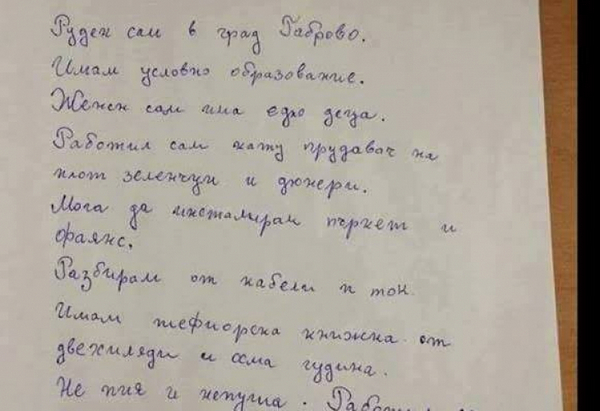 Руден сам в град Габрово.
Имам условно образование.
Женен сам има едно деца.
Работил сам кату прудавач на
плот зеленчуци и дюнери.
Мога да инсталирам пъркет и
фаянс.
Разбирам от кабели и тон.
Имам шефиорска книжка от
двехиляди и осма гудина.
Не пия и непуша. Работи